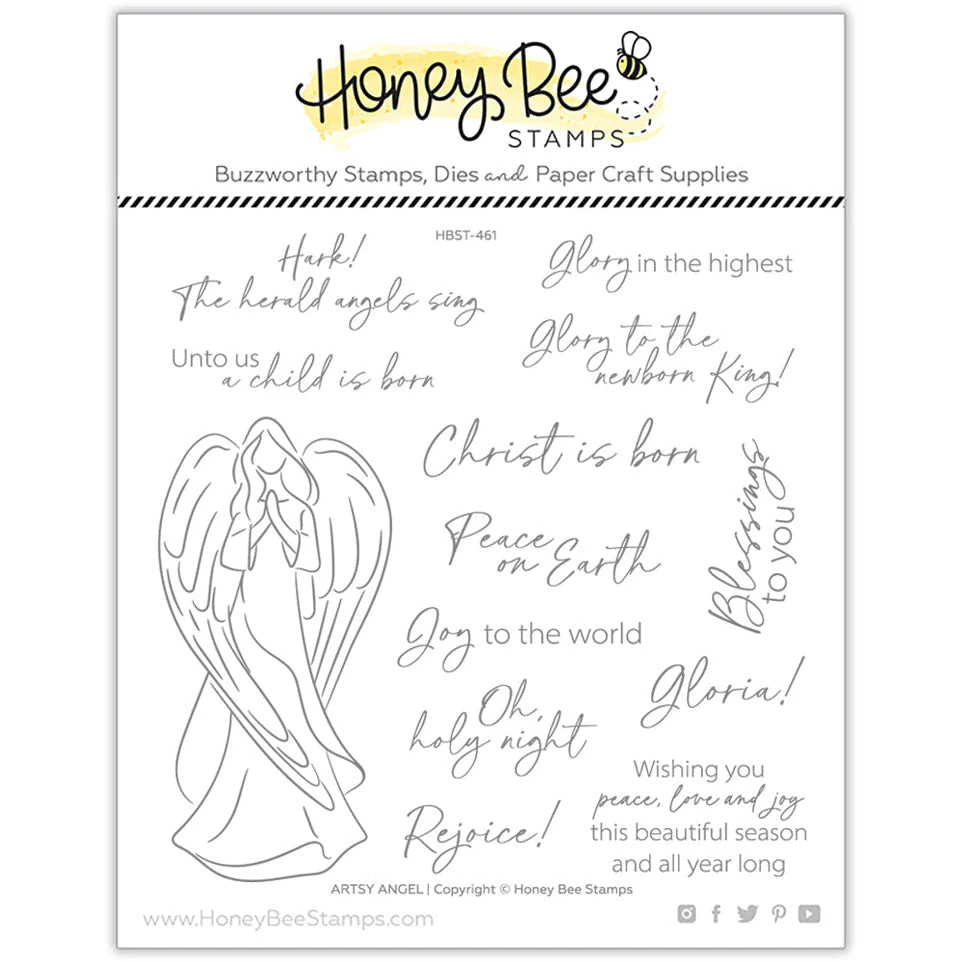 Honey Bee
STAMPS
Buzzworthy Stamps, Dies and Paper Craft Supplies
HBST-461
Hark!
The herald angels sing
Glory in the highest
Unto us
a child is born
Glory to the
newborn King!
Christ is born
Blessings
to you
Peace
on Earth
Joy to the world
Gloria!
Oh,
holy night
Wishing you
peace, love and joy
this beautiful season
and all year long
Rejoice!
ARTSY ANGEL | Copyright © Honey Bee Stamps
www.HoneyBeeStamps.com